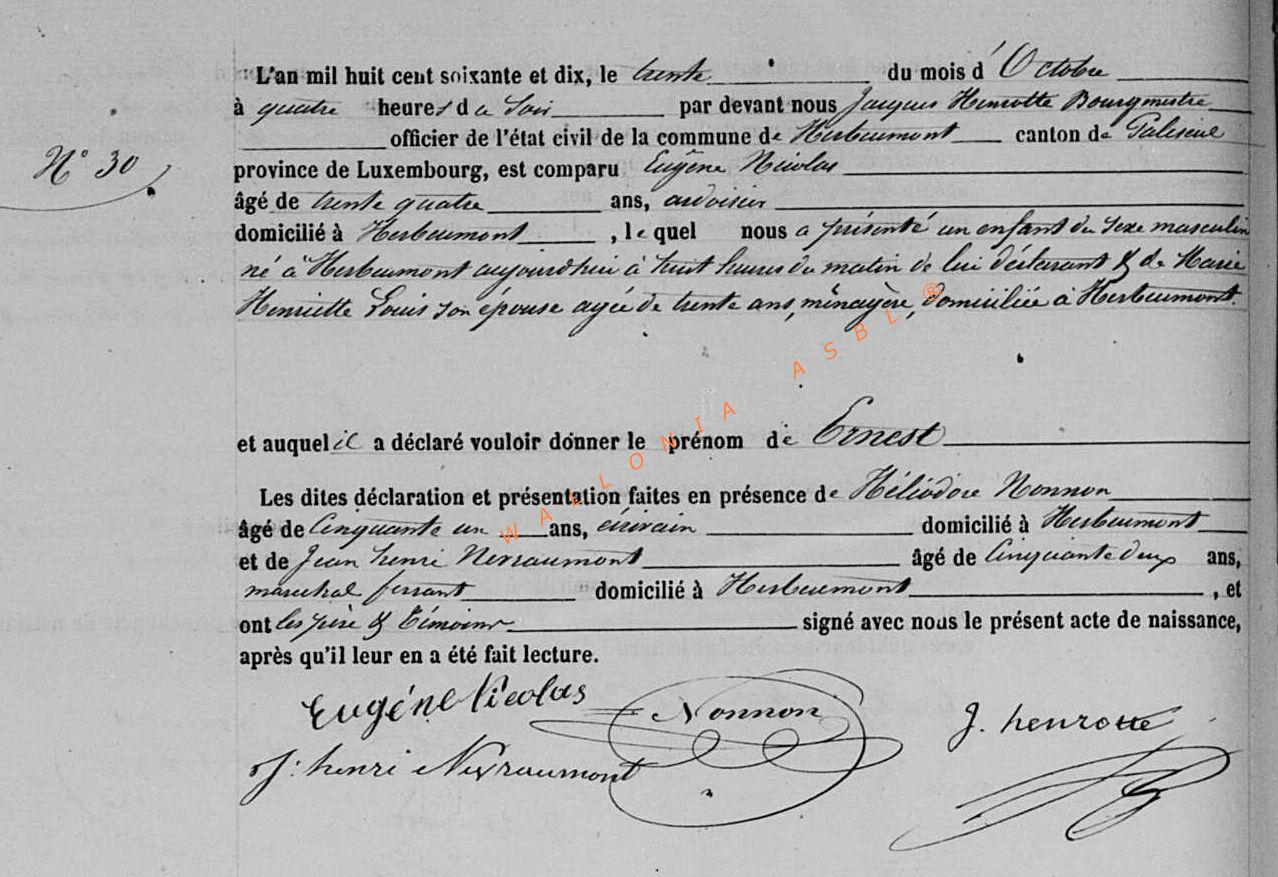 L'an mil huit cent soixante et dix, le trente du mois d'Octobre
à quatre heures de Soir par devant nous Jacques Henrotte Bourgmestre
officier de l'état civil de la commune de Herbeumont canton de Paliseul
N° 30
province de Luxembourg, est comparu Eugène Nicolas
âgé de trente quatre ans, ardoisier
domicilié à Herbeumont, lequel nous a présenté un enfant du sexe masculin
né à Herbeumont aujourdhui à huit heures du matin de lui déclarant & de Marie
Henriette Louis son épouse agée de trente ans, ménagère, domiciliée à Herbeumont.
et auquel il a déclaré vouloir donner le prénom de Ernest
Les dites déclaration et présentation faites en présence de Héliodore Nonnon
âgé de Cinquante un ans, écrivain domicilié à Herbeumont
et de Jean henri Nerraumont âgé de Cinquante deux ans,
maréchal ferrant domicilié à Herbeumont, et
ont les père & témoins signé avec nous le présent acte de naissance,
après qu'il leur en a été fait lecture.
Eugéne Nicolas Nonnon J. henrotte
J: henri
WALLONIA ASBL ®